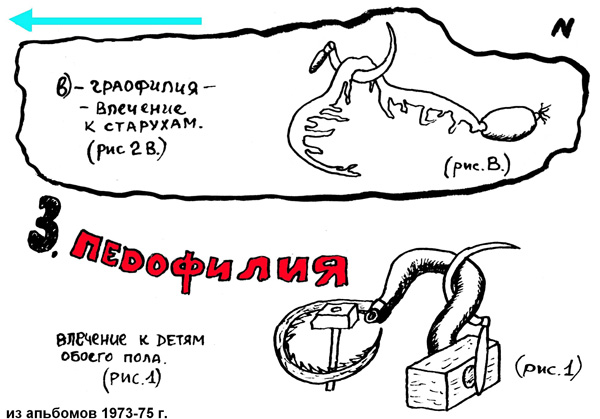 N
в)- граофилия -
- влечение
к старухам.
(рис 2 в.)
(рис. в.)
3. ПЕДОФИЛИЯ
влечение к детям
обоего пола.
(рис. 1)
(рис. 1)
из альбомов 1973-75 г.